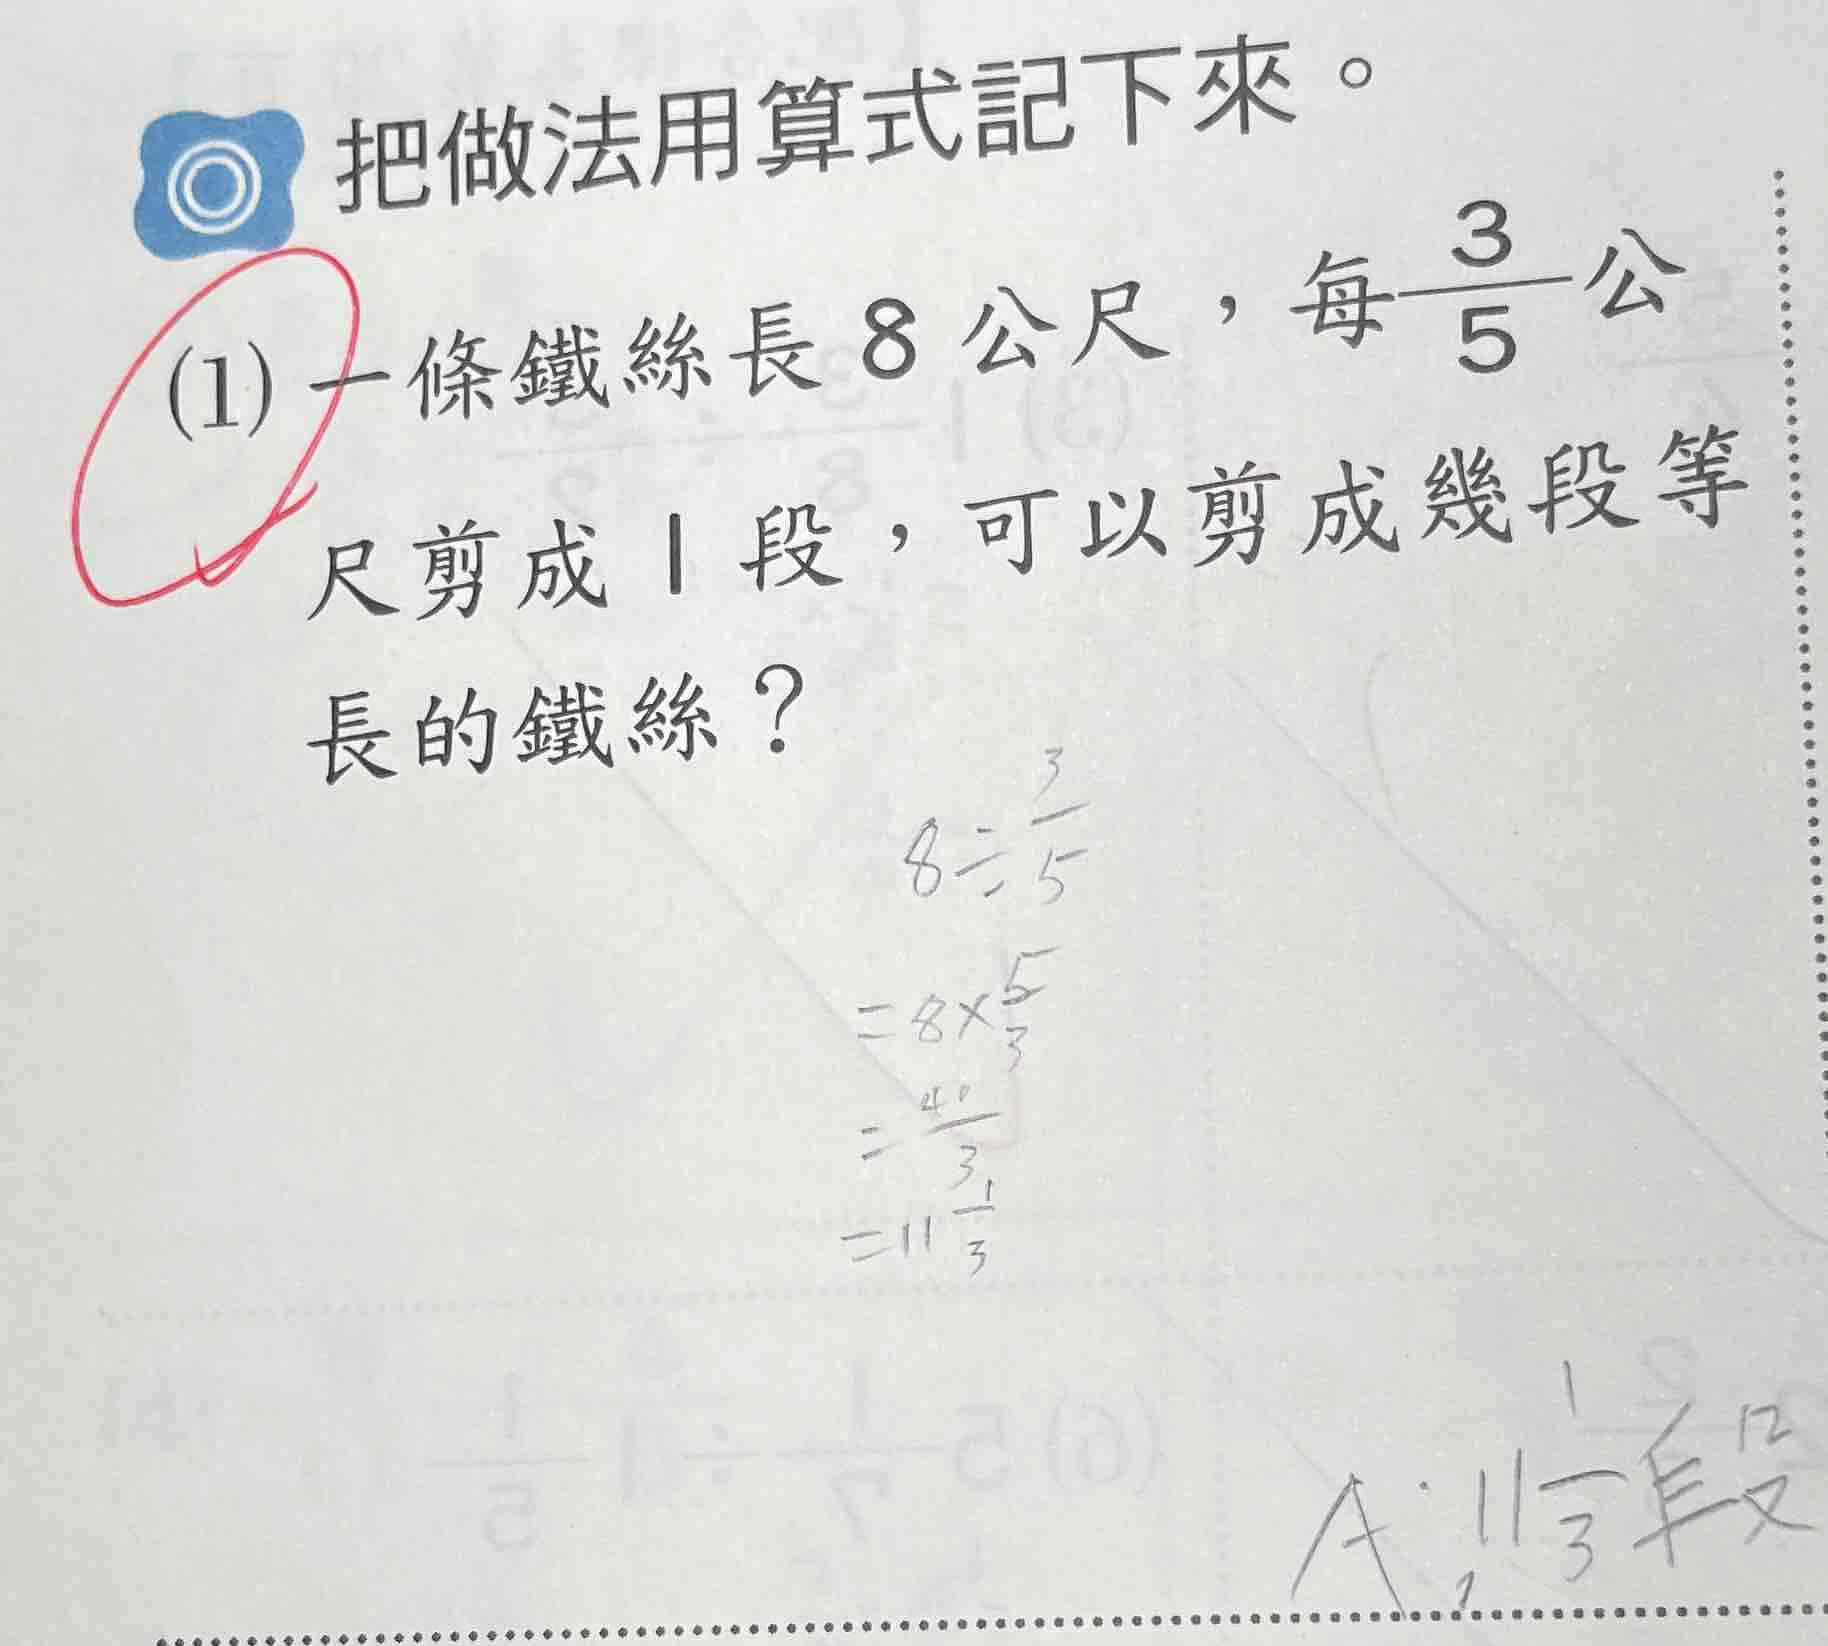 把做法用算式記下來。
(1) 一條鐵絲長 8 公尺，每 3/5 公
尺剪成 1 段，可以剪成幾段等
長的鐵絲？
8÷3/5
=8×5/3
=40/3
=11 1/3
A：11 1/3 段